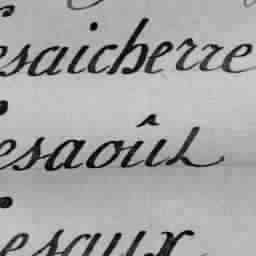 esaicherre
esaoût
esaux